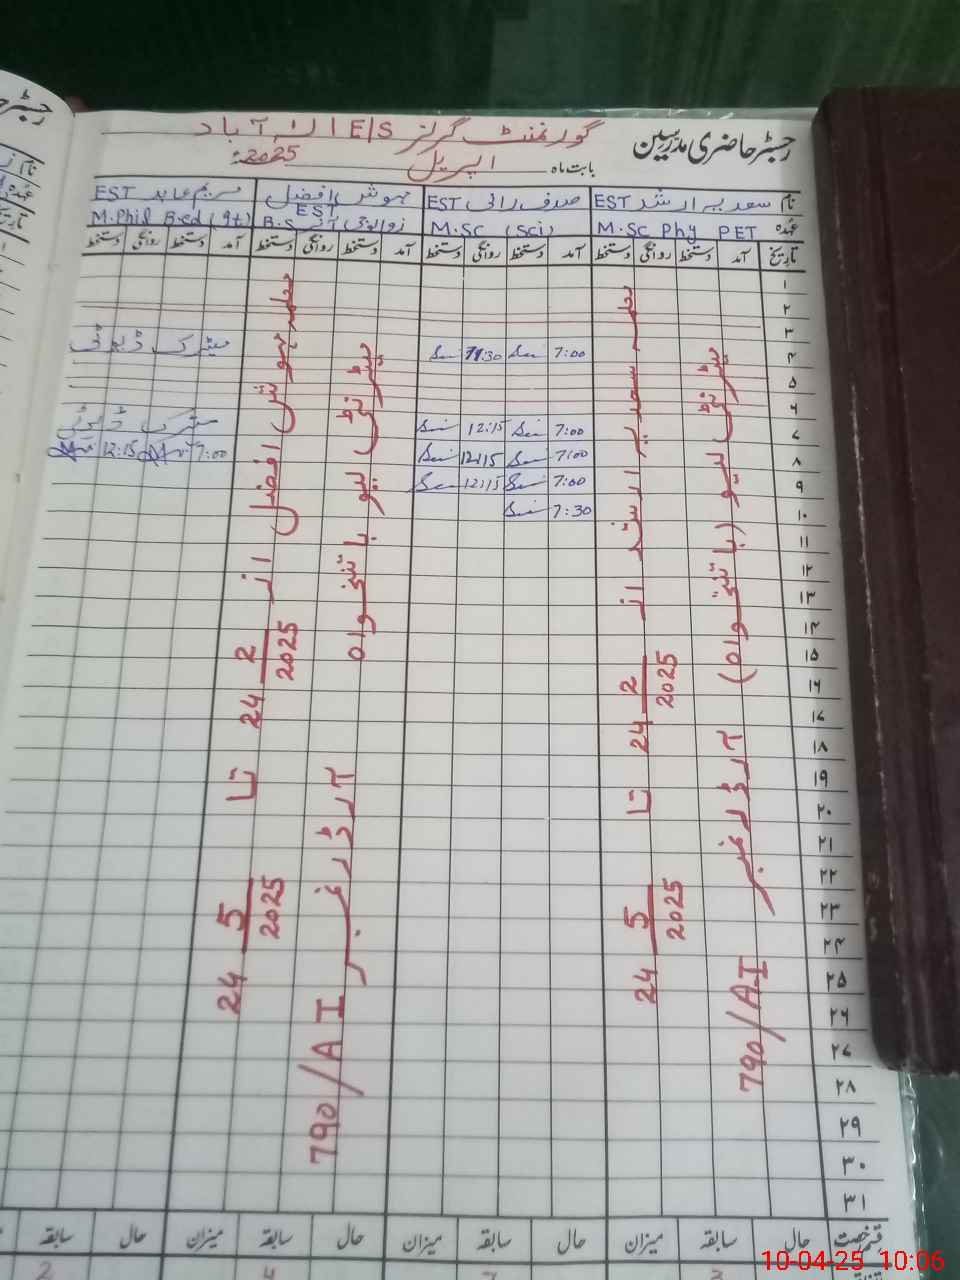 رجسٹر حاضری مدرسین
گورنمنٹ گرلز E/S الہ آباد
بابت ماہ اپریل 2025ء
نام سعدیہ ارشد EST
صدف رانی EST
مہوش افضل EST
مریم عابد EST
عہدہ M.Sc Phy PET
M.Sc (Sci)
زوالوجی آنرز B.S
M.Phil B.ed (9t)
تاریخ آمد دستخط روانگی دستخط آمد دستخط روانگی دستخط آمد دستخط روانگی دستخط آمد دستخط روانگی دستخط
۱
۲
۳
۴ 7:00 11:30 میٹرک ڈیوٹی
۵
۶
۷ 7:00 12:15 میٹرک ڈیوٹی
۸ 7:00 12:15 7:00 12:15
۹ 7:00 12:15
۱۰ 7:30
۱۱
۱۲
۱۳
۱۴
۱۵
۱۶
۱۷
۱۸
۱۹
۲۰
۲۱
۲۲
۲۳
۲۴
۲۵
۲۶
۲۷
۲۸
۲۹
۳۰
۳۱
میٹرنٹی لیو (باتنخواہ) آرڈر نمبر 790/AI
معلمہ سعدیہ ارشد از 24 2/2025 تا 24 5/2025
میٹرنٹی لیو باتنخواہ آرڈر نمبر 790/AI
معلمہ مہوش افضل از 24 2/2025 تا 24 5/2025
قسم رخصت حال سابقہ میزان حال سابقہ میزان حال سابقہ میزان حال سابقہ
10-04-25 10:06